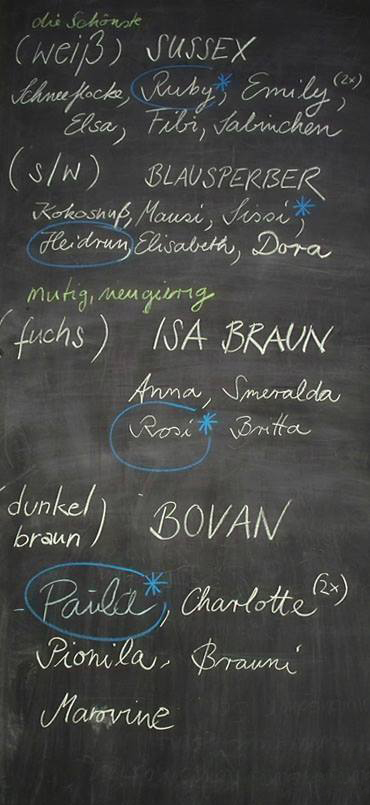 die Schönste
(weiß) SUSSEX
Schneeflocke, Ruby*, Emily (2x),
Elsa, Fibi, Sabinchen
(s/w) BLAUSPERBER
Kokosnuß, Mausi, Sissi*,
Heidrun, Elisabeth, Dora
mutig, neugierig
(fuchs) ISA BRAUN
Anna, Smeralda
Rosi* Britta
(dunkel braun) BOVAN
Paula*, Charlotte (2x)
Pionila, Brauni
Marovine